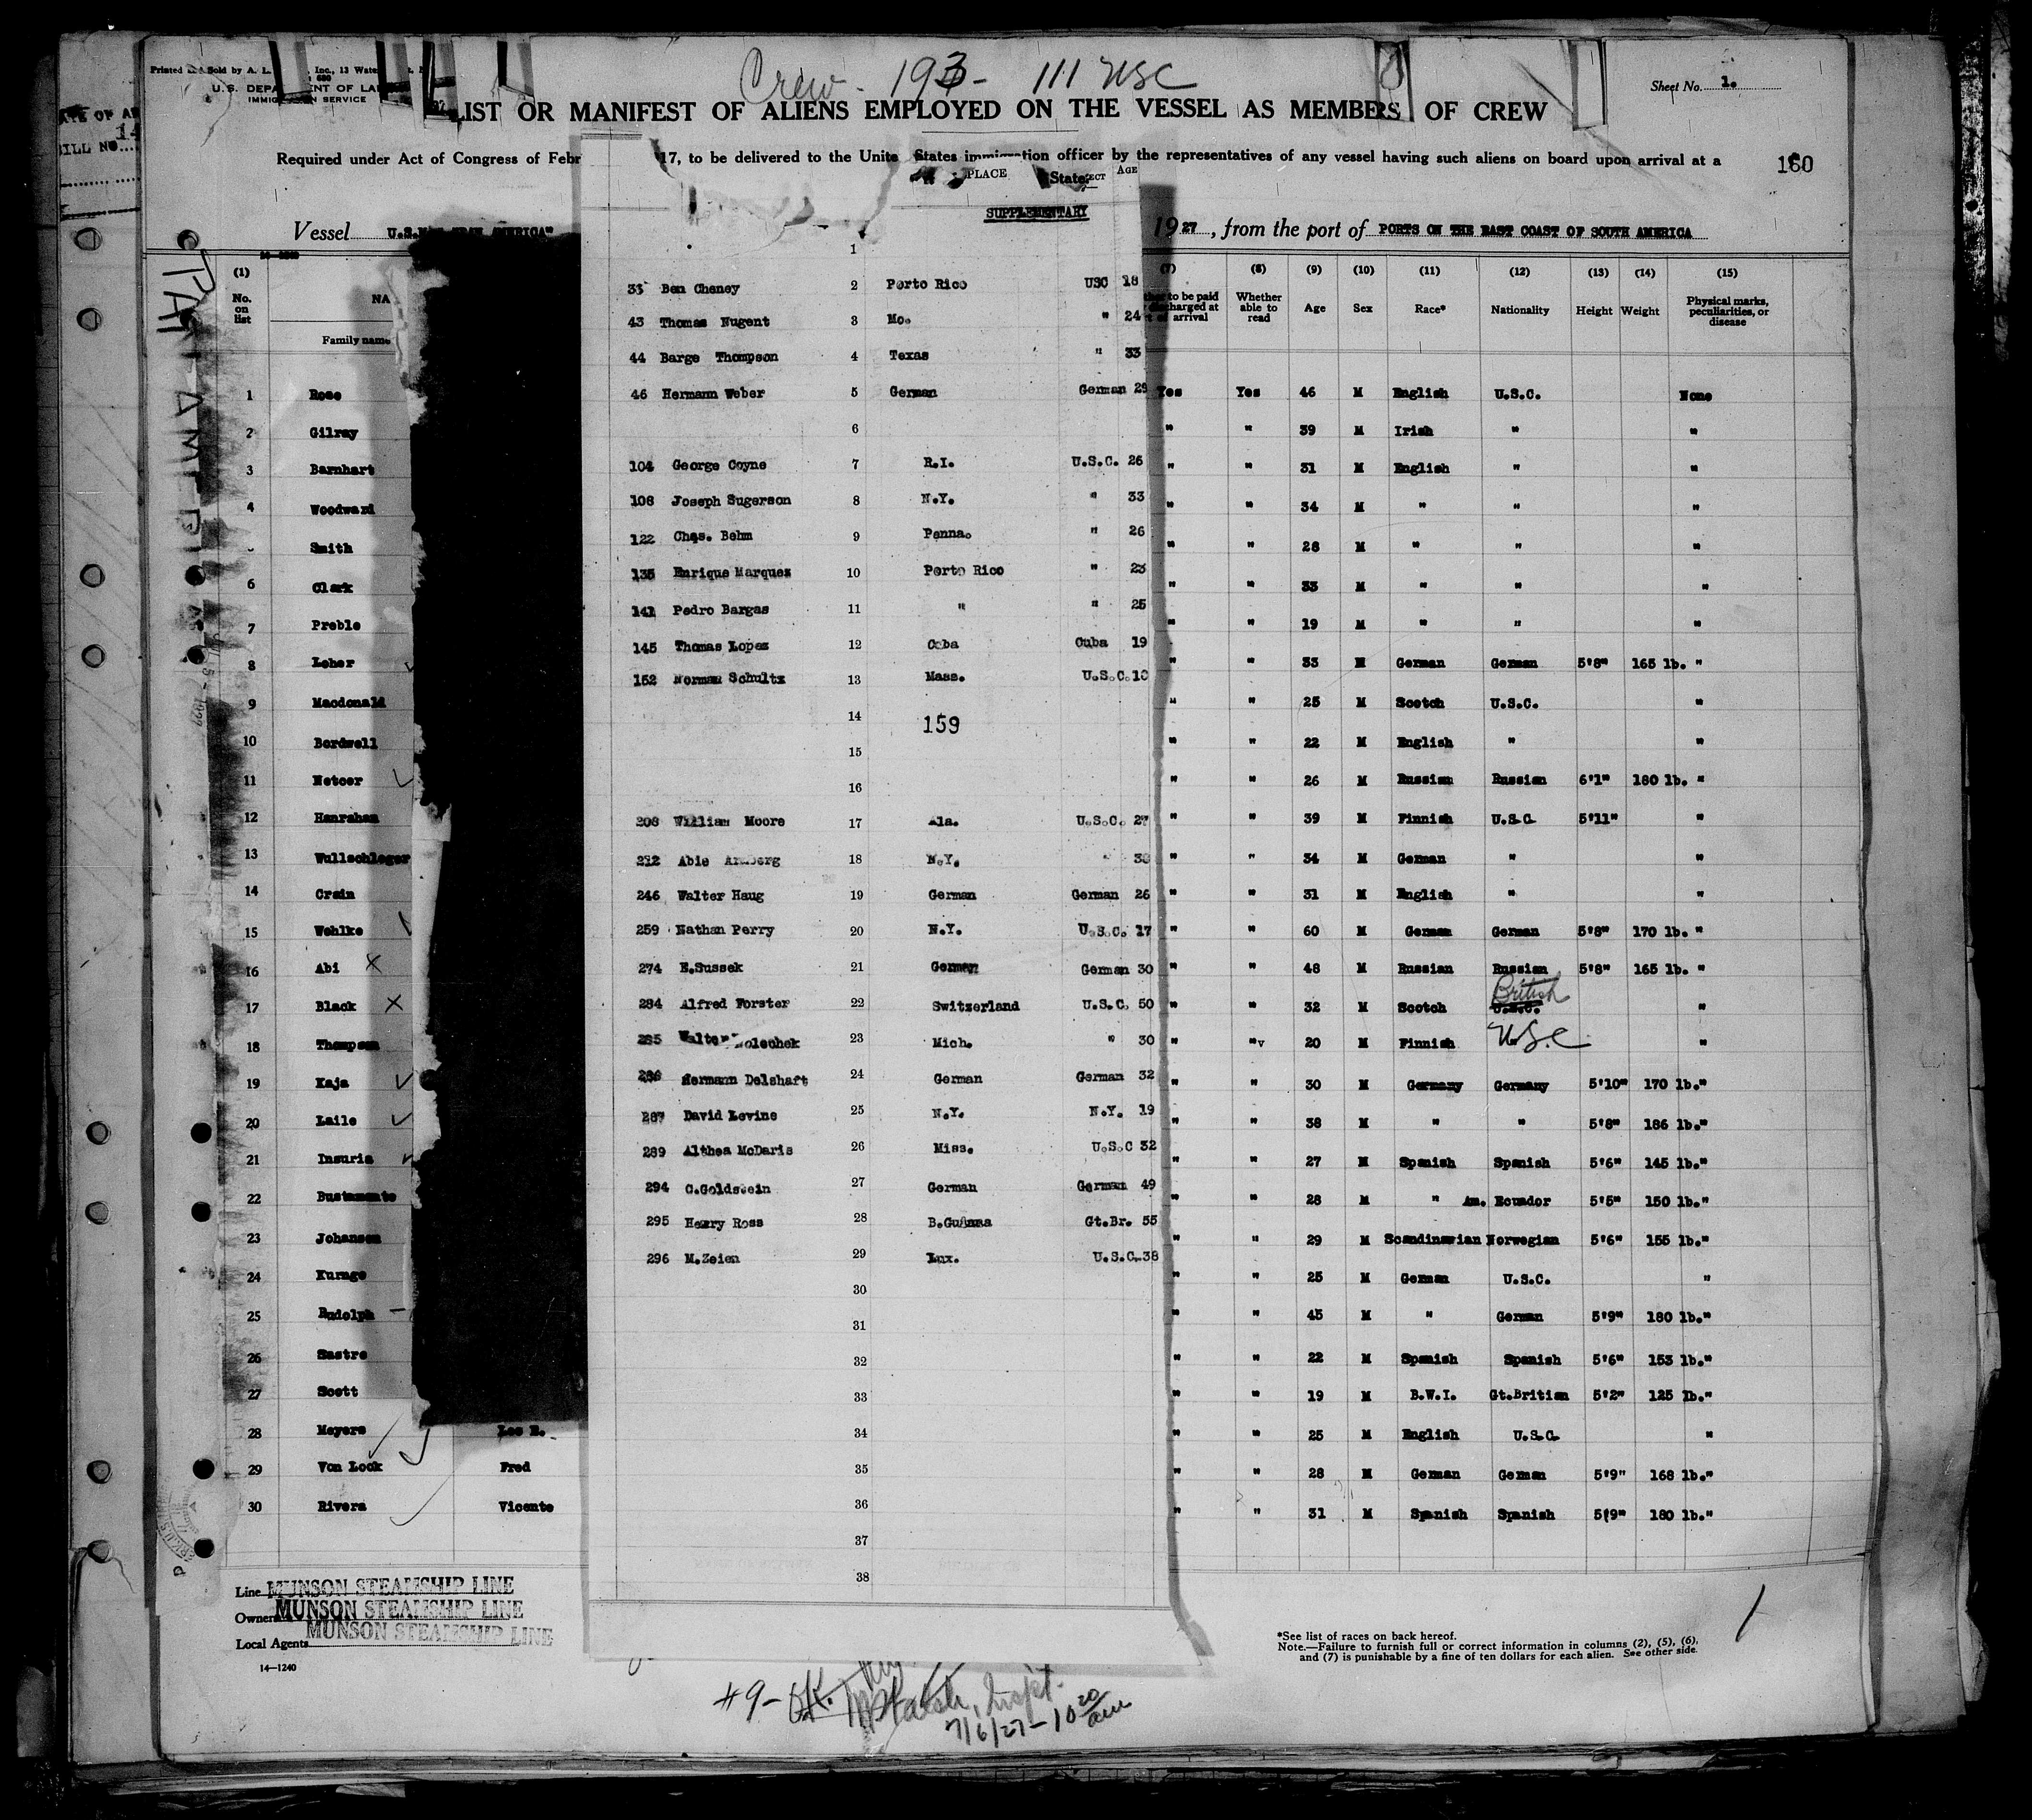 Crew - 193 - 111 USC
Printed and Sold by A. L. Inc., 13 Water
U. S. DEPA ENT OF LA
IMMIG N SERVICE
Sheet No. 1.
LIST OR MANIFEST OF ALIENS EMPLOYED ON THE VESSEL AS MEMBERS OF CREW
Required under Act of Congress of Febr 17, to be delivered to the Unite States immigration officer by the representatives of any vessel having such aliens on board upon arrival at a
160
PLACE State ECT AGE
SUPPLEMENTARY
Vessel AMERICA" 19 27, from the port of PORTS ON THE EAST COAST OF SOUTH AMERICA
PAN AMERIC
1
33 Ben Cheney 2 Porto Rico USC 18
43 Thomas Nugent 3 Mo. " 24
44 Barge Thompson 4 Texas " 33
46 Hermann Weber 5 German German 28
6
104 George Coyne 7 R.I. U.S.C. 26
108 Joseph Sugerson 8 N.Y. " 33
122 Chas. Behm 9 Penna. " 26
135 Enrique Marquez 10 Porto Rico " 23
141 Pedro Bargas 11 " " 25
145 Thomas Lopez 12 Cuba Cuba 19
152 Norman Schultz 13 Mass. U.S.C.
14 159
15
16
208 William Moore 17 Ala. U.S.C. 27
212 Abie 18 N.Y. "
246 Walter Haug 19 German German 26
259 Nathan Perry 20 N.Y. U.S.C. 17
274 E.Sussek 21 German German 30
284 Alfred Forster 22 Switzerland U.S.C. 50
285 Walter 23 Mich. " 30
286 Hermann Delshaft 24 German German 32
287 David Levine 25 N.Y. N.Y. 19
289 Althea McDaris 26 Miss. U.S.C 32
294 C.Goldstein 27 German German 49
295 Henry Ross 28 B.Guiana Gt.Br. 55
296 M.Zeien 29 Lux. U.S.C. 38
30
31
32
33
34
35
36
37
38
(1) (7) (8) (9) (10) (11) (12) (13) (14) (15)
No. on list NA Family name to be paid discharged at arrival Whether able to read Age Sex Race* Nationality Height Weight Physical marks, peculiarities, or disease
1 Rose Yes Yes 46 M English U.S.C. None
2 Gilroy " " 39 M Irish " "
3 Barnhart " " 31 M English " "
4 Woodward " " 34 M " " "
Smith " " 28 M " " "
6 Clark " " 33 M " " "
7 Preble " " 19 M " " "
8 Loher " " 33 M German German 5'8" 165 lb. "
9 Macdonald " " 25 M Scotch U.S.C. "
10 Bordwell " " 22 M English " "
11 Netcer " " 26 M Russian Russian 6'1" 180 lb. "
12 Hanrahan " " 39 M Finnish U.S.C. 5'11" "
13 Wullschleger " " 34 M German " "
14 Crain " " 31 M English " "
15 Wehlke " " 60 M German German 5'8" 170 lb. "
16 Abi X " " 48 M Russian Russian 5'8" 165 lb. "
17 Black X " " 32 M Scotch U.S.C. British "
18 Thompson " " 20 M Finnish USC "
19 Kaja " " 30 M Germany Germany 5'10" 170 lb."
20 Laile " " 38 M " " 5'8" 186 lb."
21 Insuria " " 27 M Spanish Spanish 5'6" 145 lb."
22 Bustamente " " 28 M " Am. Ecuador 5'5" 150 lb."
23 Johansen " " 29 M Scandinavian Norwegian 5'6" 155 lb."
24 Kurage " " 25 M German U.S.C. "
25 Rudolph " " 45 M " German 5'9" 180 lb."
26 Sastre " " 22 M Spanish Spanish 5'6" 153 lb."
27 Scott " " 19 M B.W.I. Gt.Britian 5'2" 125 lb."
28 Meyers Leo E. " " 25 M English U.S.C. "
29 Von Look Fred " " 28 M German German 5'9" 168 lb."
30 Rivera Vicente " " 31 M Spanish Spanish 5'9" 180 lb."
Line MUNSON STEAMSHIP LINE
Owners MUNSON STEAMSHIP LINE
Local Agents MUNSON STEAMSHIP LINE
14—1240
*See list of races on back hereof.
Note.—Failure to furnish full or correct information in columns (2), (5), (6), and (7) is punishable by a fine of ten dollars for each alien. See other side.
#9 - OK. Walsh, Inspt.
7/6/27 - 10 20 am